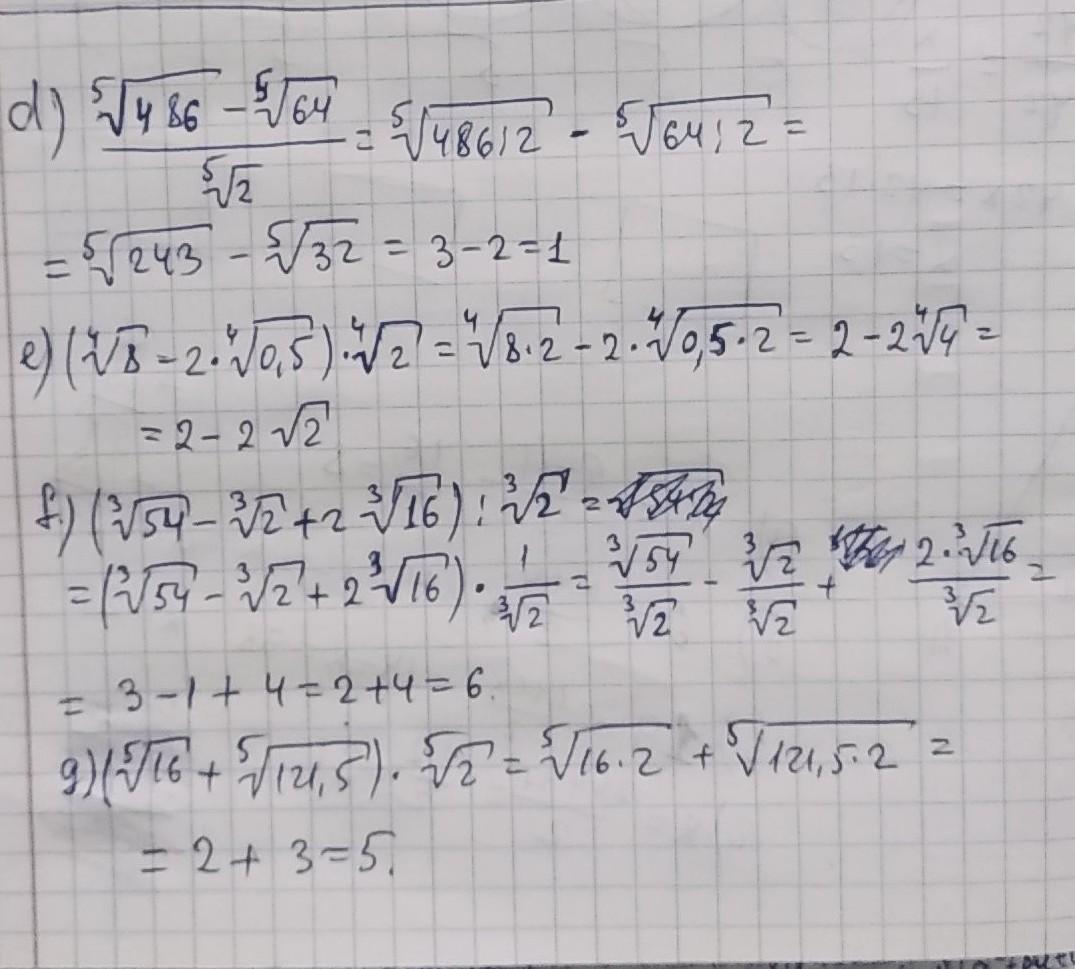 d) (⁵√486 - ⁵√64) / ⁵√2 = ⁵√(486:2) - ⁵√(64:2) =
= ⁵√243 - ⁵√32 = 3-2=1
e) (⁴√8 - 2·⁴√0,5)·⁴√2 = ⁴√(8·2) - 2·⁴√(0,5·2) = 2 - 2⁴√4 =
= 2 - 2√2
f.) (³√54 - ³√2 + 2 ³√16) : ³√2 =
= (³√54 - ³√2 + 2³√16) · 1/³√2 = ³√54/³√2 - ³√2/³√2 + 2·³√16/³√2 =
= 3-1+4=2+4=6.
g) (⁵√16 + ⁵√121,5) · ⁵√2 = ⁵√(16·2) + ⁵√(121,5·2) =
= 2+ 3=5.